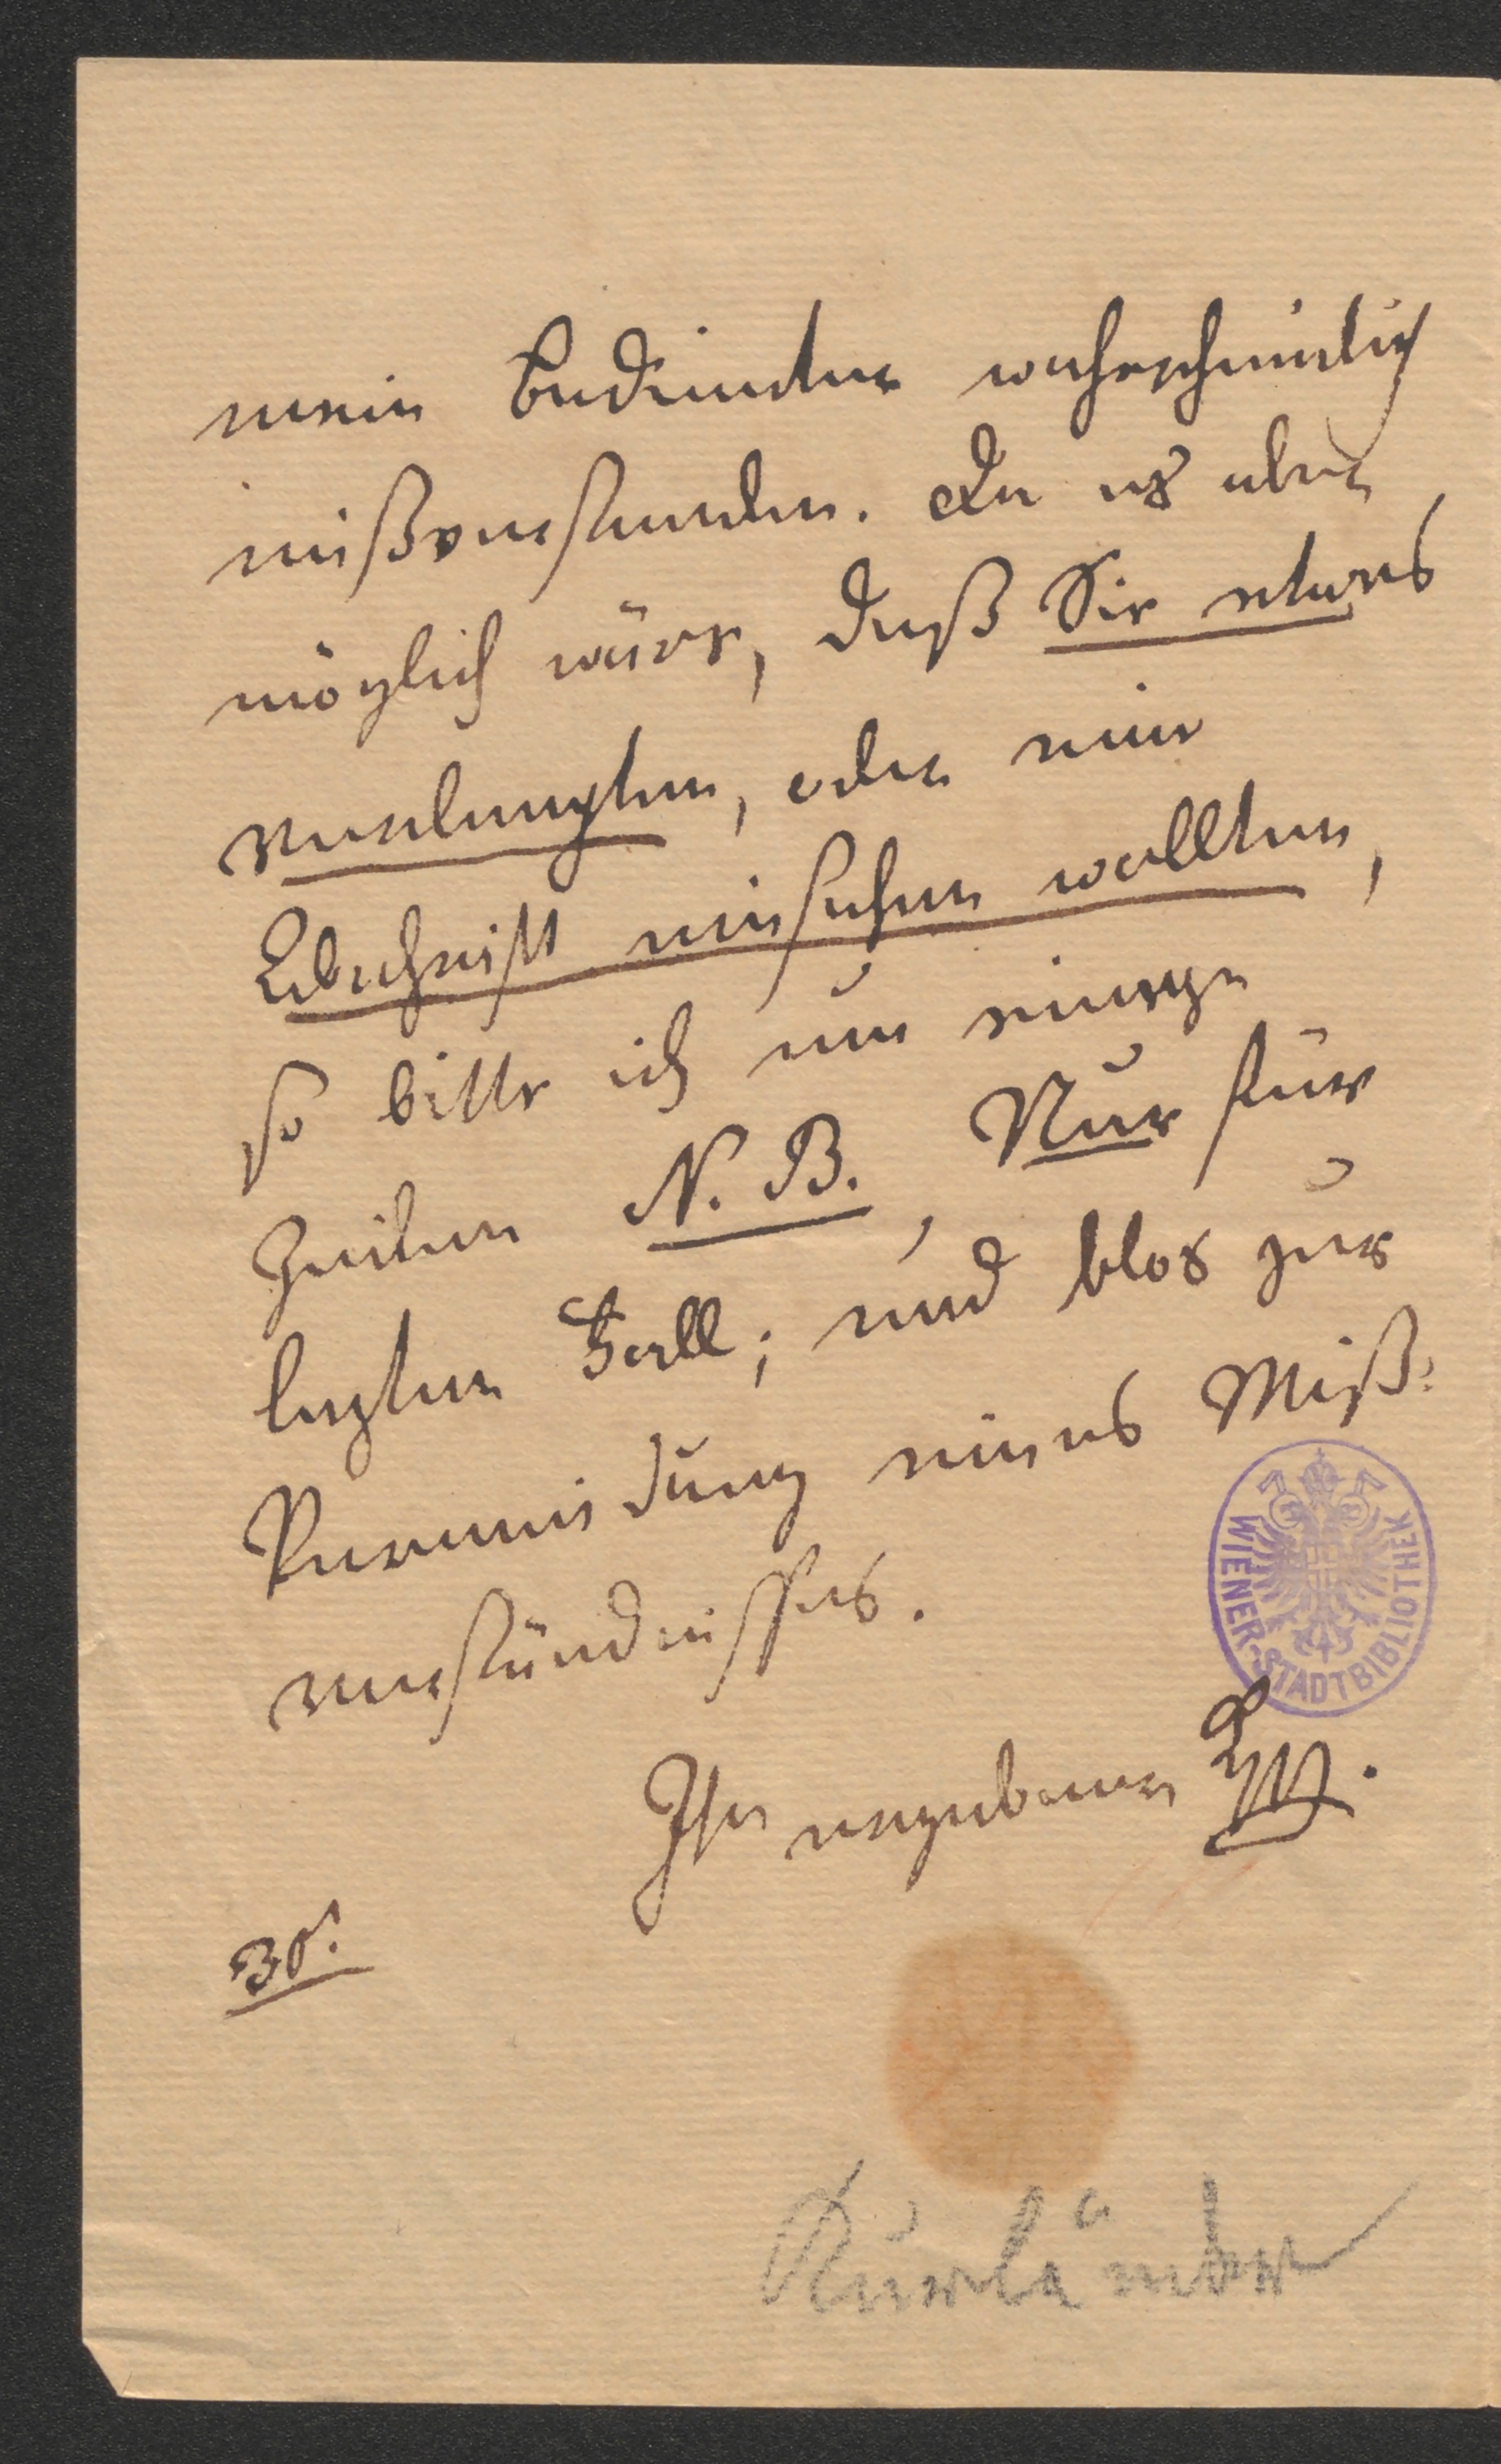 mein Bedienter wahrscheinlich
mißverstanden. Da es aber
möglich wäre, daß Sie etwas
verlangten, oder eine
Abschrift einsehen wollten,
so bitte ich um einige
Zeilen N. B., Nur für
letzten Fall; und blos zur
Vermeidung eines Miß-
verständnisses.
Ihr ergebener
WIENER-STADTBIBLIOTHEK
Kurländer